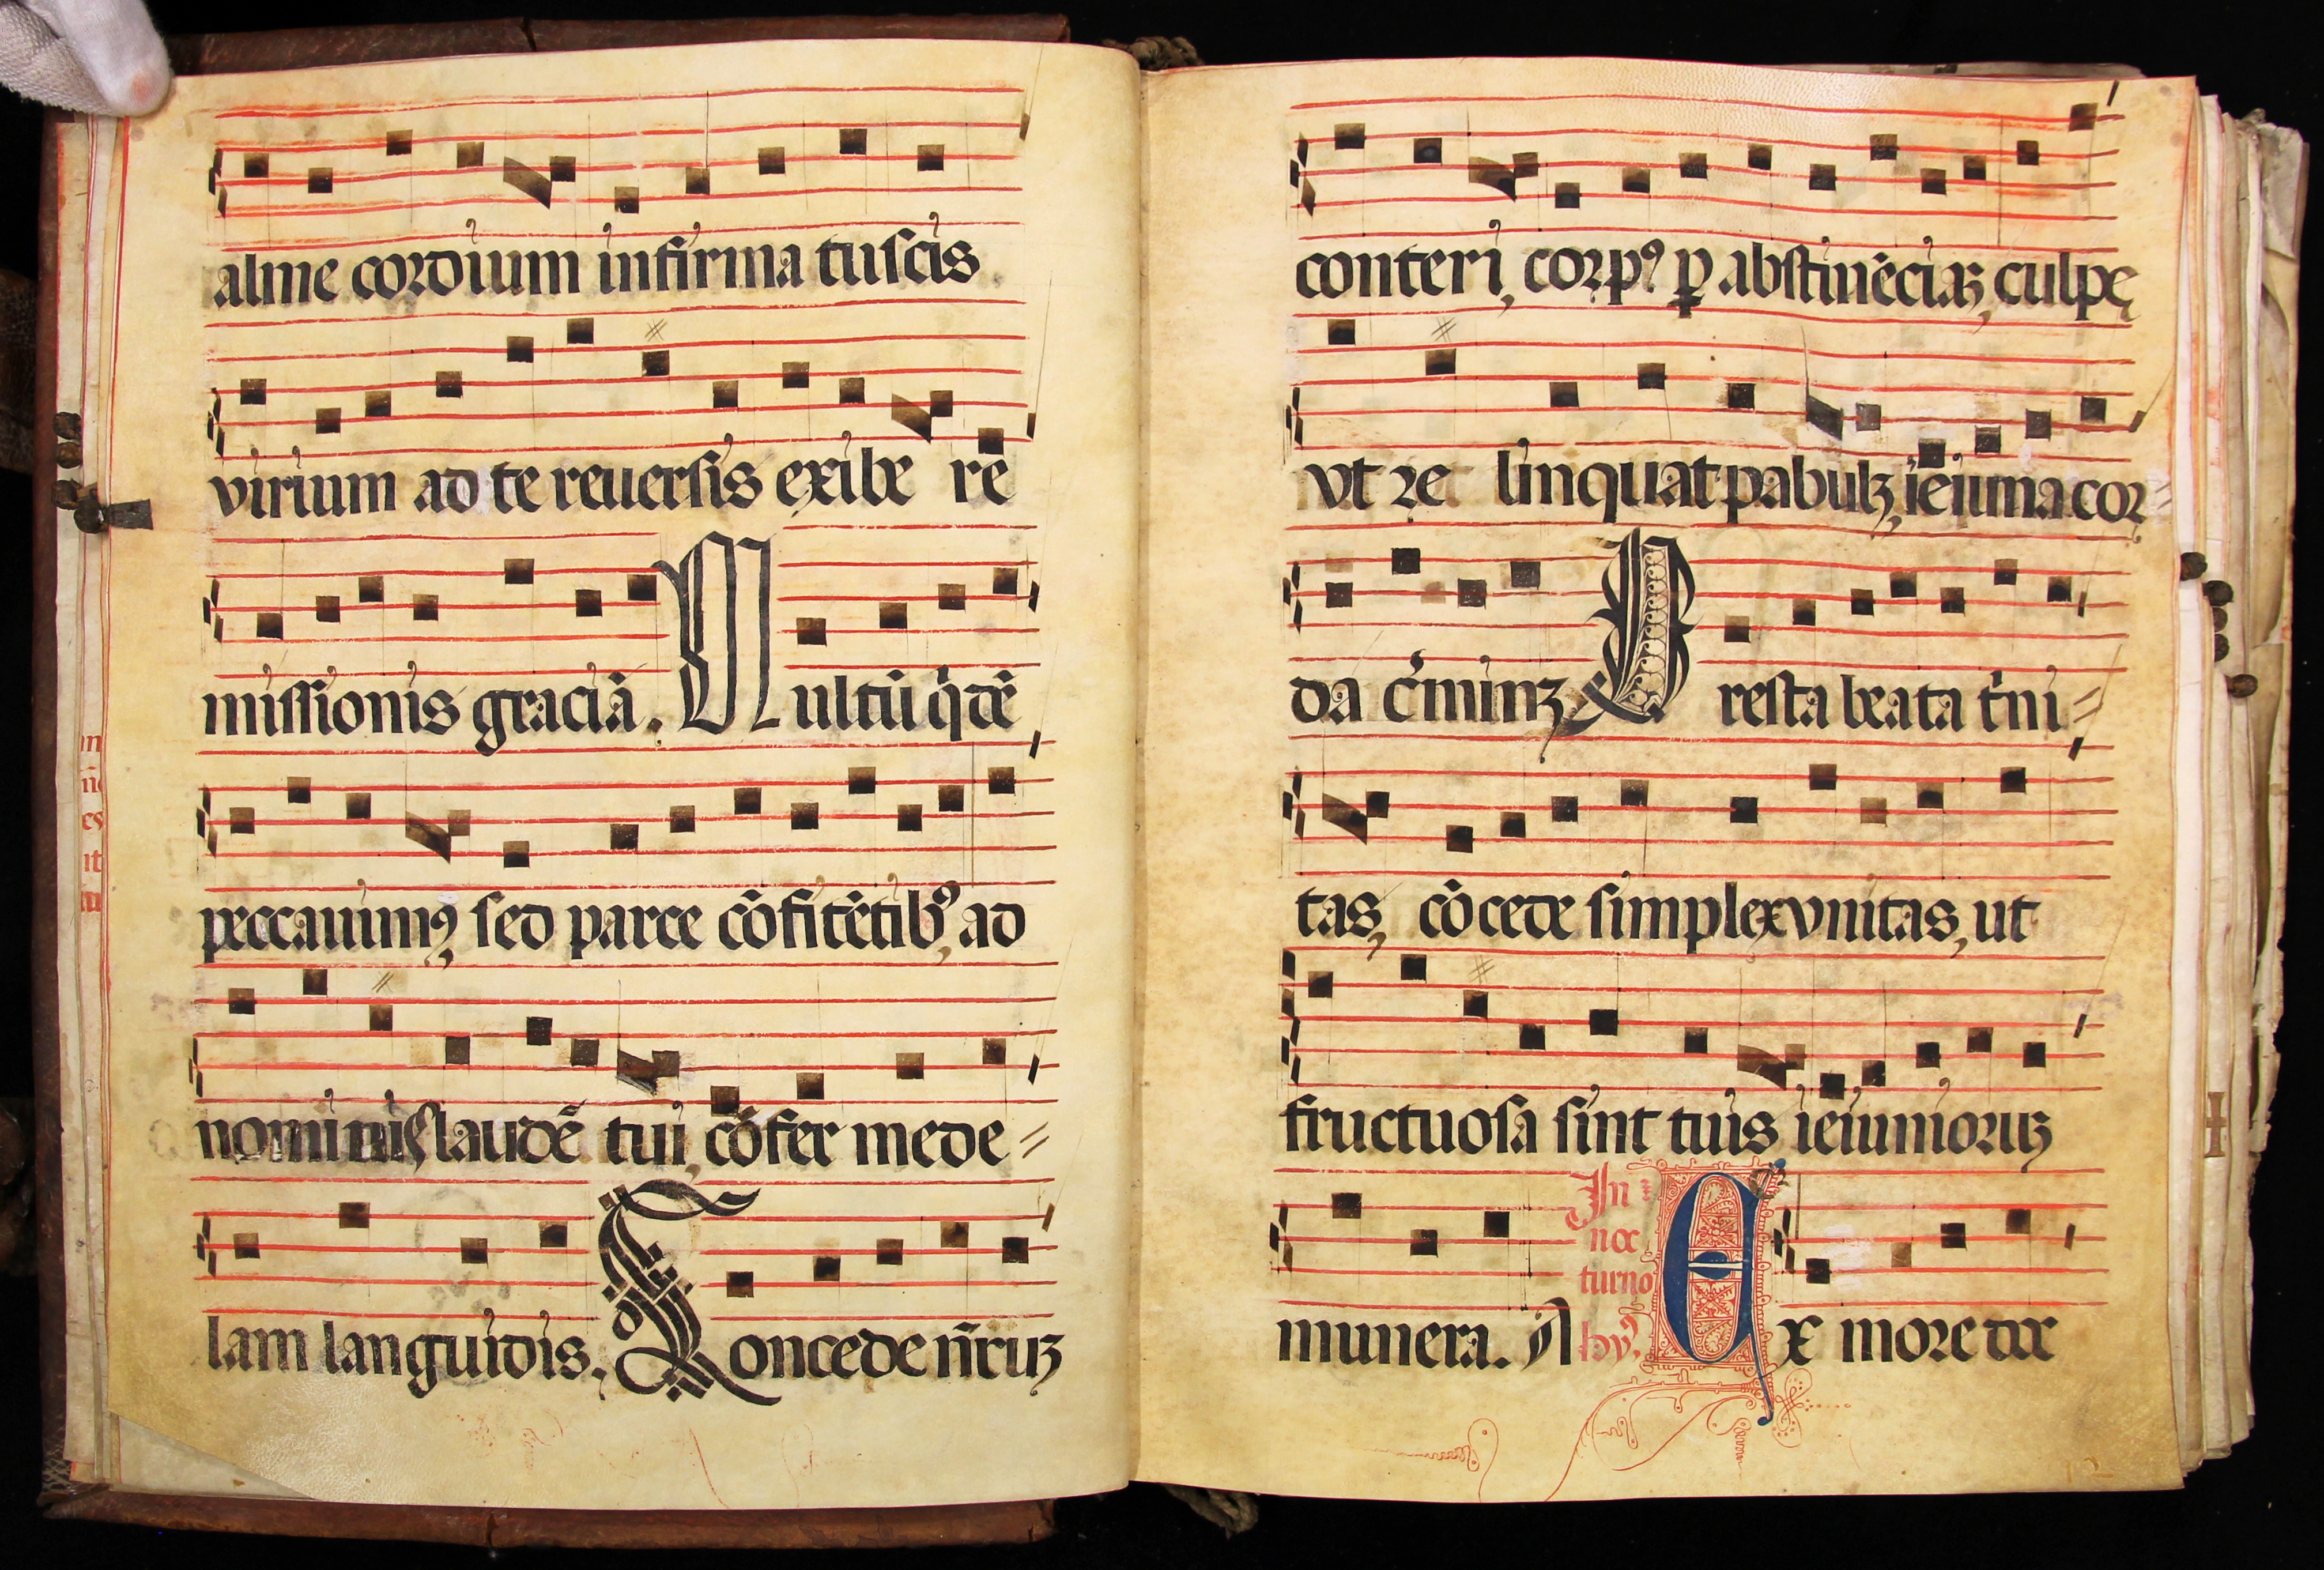 alme cordium infirma tu scis
virium ad te reuersis exibe re
missionis graciā. Multū q̇dē
peccauimꝰ, sed parce cōfitētibꝰ, ad
nominis laudē tui, cōfer mede=
lam languidis. Concede nr̄uꝫ
conteri, corpꝰ ꝑ abstinēciaꝫ, culpę
vt re linquat pabulꝫ, ieiuna cor=
da c̄minꝫ Presta beata t̄ni=
tas, cōcede simplex vnitas, ut
fructuosa sint tuis ieiunioruꝫ
munera. A In noc turno hyꝰ Ex more doc